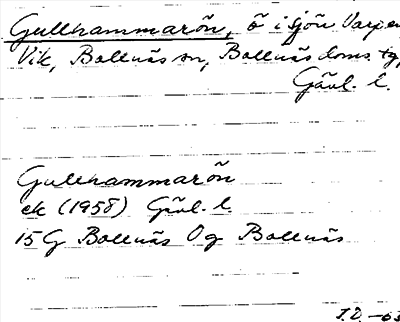 Gullhammarön, ö i sjön Varpen
Vik, Bollnäs sn, Bollnäs doms. tg,
Gävl. l.
Gullhammarön
ek (1958) Gävl. l.
15G Bollnäs Og Bollnäs
J.D. -63